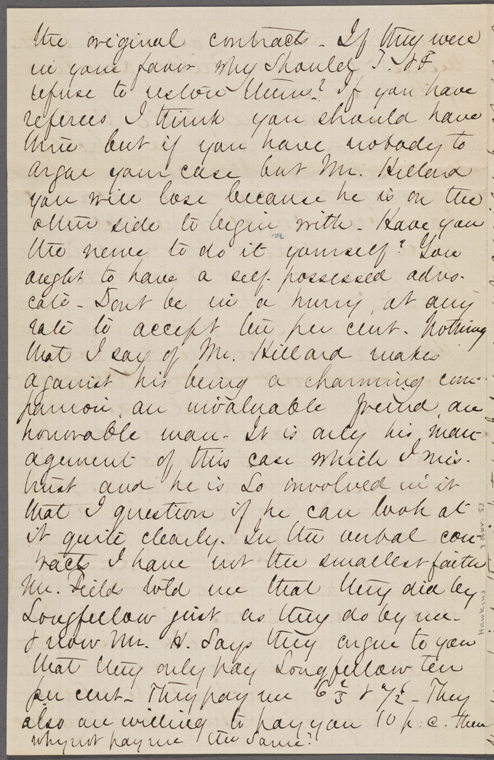 the original contracts - If they were
in your favor why should T. & F.
refuse to restore them? If you have
referees I think you should have
three but if you have nobody to
argue your case but Mr. Hillard
you will lose because he is on the
other side to begin with - Have you
the nerve to do it yourself? You
ought to have a self possessed advo-
cate - Dont be in a hurry, at any
rate to accept ten per cent. Nothing
that I say of Mr. Hillard makes
against his being a charming com-
panion, an invaluable friend, an
honorable man - It is only his man-
agement of this case which I mis-
trust and he is so involved in it
that I question if he can look at
it quite clearly. In the verbal con-
tracts I have not the smallest faith
Mr. Fields told me that they did by
Longfellow just as they do by me -
& now Mr. H. says they argue to you
that they only pay Longfellow ten
per cent - They pay me 6 2/3 & 7 1/2 - They
also are willing to pay you 10 p. c. then
why not pay me the same?